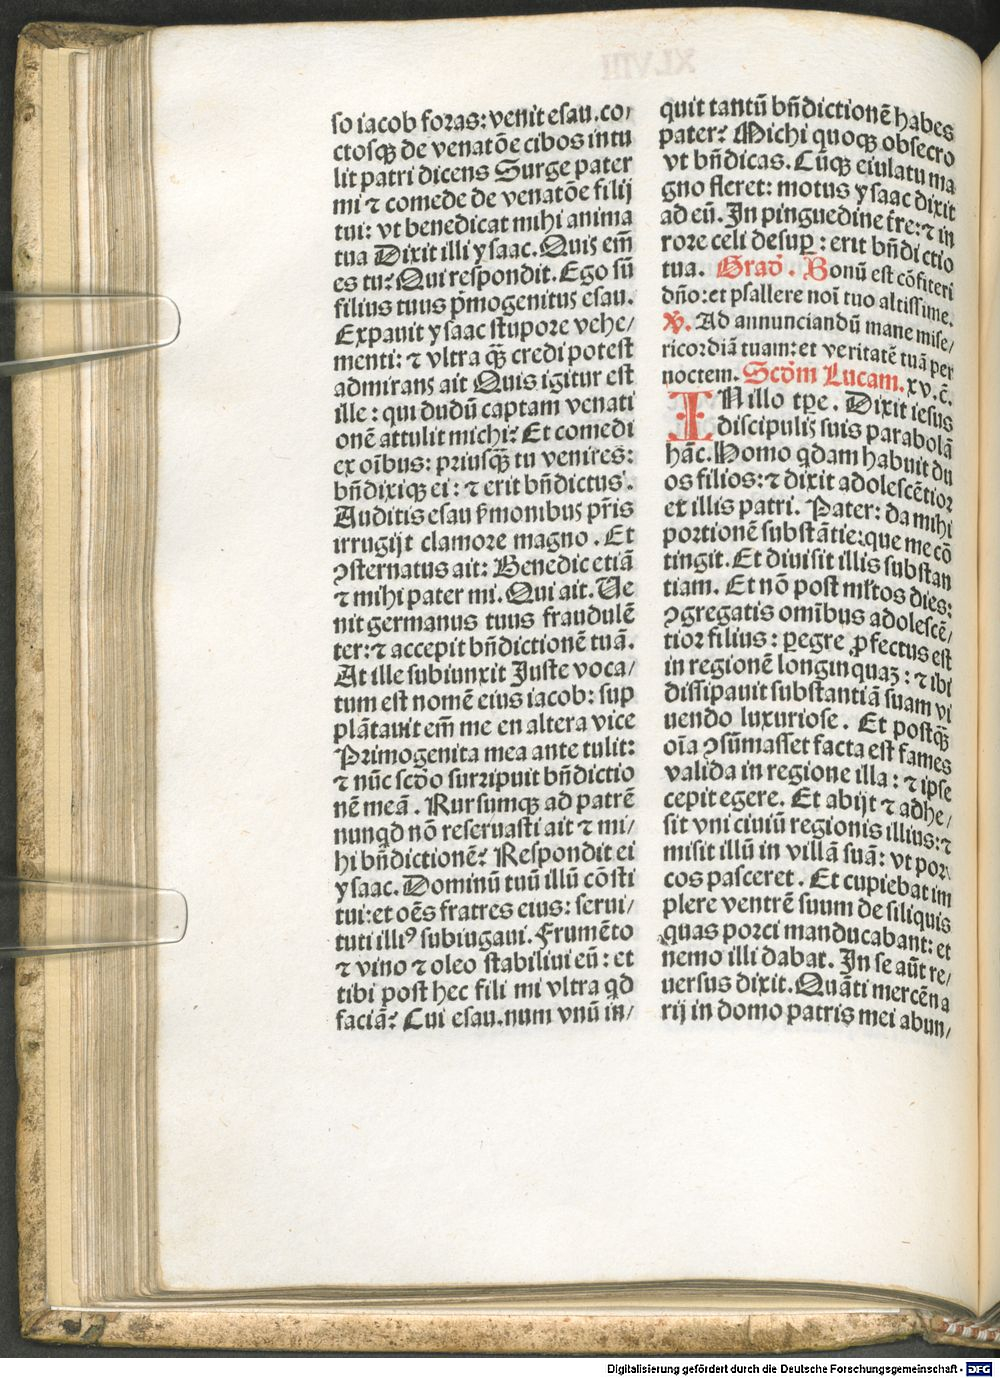 so iacob foras: venit esau. co/
ctosqꝫ de venatōe cibos intu
lit patri dicens Surge pater
mi ⁊ comede de venatōe filij
tui: vt benedicat mihi anima
tua Dixit illi ysaac. Quis em̄
es tu? Qui respondit. Ego sū
filius tuus p̄mogenitus esau.
Expauit ysaac stupore vehe/
menti: ⁊ vltra qꝫ̄ credi potest
admirans ait Quis igitur est
ille: qui dudū captam venati
onē attulit michi? Et comedi
ex oībus: priusqꝫ̄ tu venires:
bn̄dixiqꝫ ei: ⁊ erit bn̄dictus.
Auditis esau ẜmonibus pr̄is
irrugijt clamore magno. Et
ꝯsternatus ait: Benedic etiā
⁊ mihi pater mi. Qui ait. Ve
nit germanus tuus fraudulē
ter: ⁊ accepit bn̄dictionē tuā.
At ille subiunxit Juste voca/
tum est nomē eius iacob: sup
plātauit em̄ me en altera vice
Primogenita mea ante tulit:
⁊ nūc scd̄o surripuit bn̄dictio
nē meā. Rursumqꝫ ad patrē
nunqd nō reseruasti ait ⁊ mi/
hi bn̄dictionē? Respondit ei
ysaac. Dominū tuū illū cōsti
tui: et oēs fratres eius: serui/
tuti illiꝰ subiugaui. Frumēto
⁊ vino ⁊ oleo stabiliui eū: et
tibi post hec fili mi vltra qd
faciā? Cui esau. num vnū in/
quit tantū bn̄dictionē habes
pater? Michi quoqꝫ obsecro
vt bn̄dicas. Cūqꝫ eiulatu ma
gno fleret: motus ysaac dixit
ad eū. In pinguedine t̄re: ⁊ in
rore celi desuꝑ: erit bn̄dictio
tua. Grad̄. Bonū est cōfiteri
dn̄o: et psallere noī tuo altissime.
℣. Ad annunciandū mane mise/
ricordiā tuam: et veritatē tuā per
noctem. Scd̄m Lucam. xv. c̄.
IN illo tꝑe. Dixit iesus
discipulis suis parabolā
hāc. Homo qdam habuit du
os filios: ⁊ dixit adolescētior
ex illis patri. Pater: da mihi
portionē substātie: que me cō
tingit. Et diuisit illis substan
tiam. Et nō post ml̄tos dies:
ꝯgregatis omībus adolescē/
tior filius: ꝑegre ꝓfectus est
in regionē longinquaꝫ: ⁊ ibi
dissipauit substantiā suam vi
uendo luxuriose. Et postqꝫ̄
oīa ꝯsūmasset facta est fames
valida in regione illa: ⁊ ipse
cepit egere. Et abijt ⁊ adhe/
sit vni ciuiū regionis illius: ⁊
misit illū in villā suā: vt por
cos pasceret. Et cupiebat im
plere ventrē suum de siliquis
quas porci manducabant: et
nemo illi dabat. In se aūt re/
uersus dixit. Quāti mercēna
rij in domo patris mei abun/
Digitalisierung gefördert durch die Deutsche Forschungsgemeinschaft - DFG